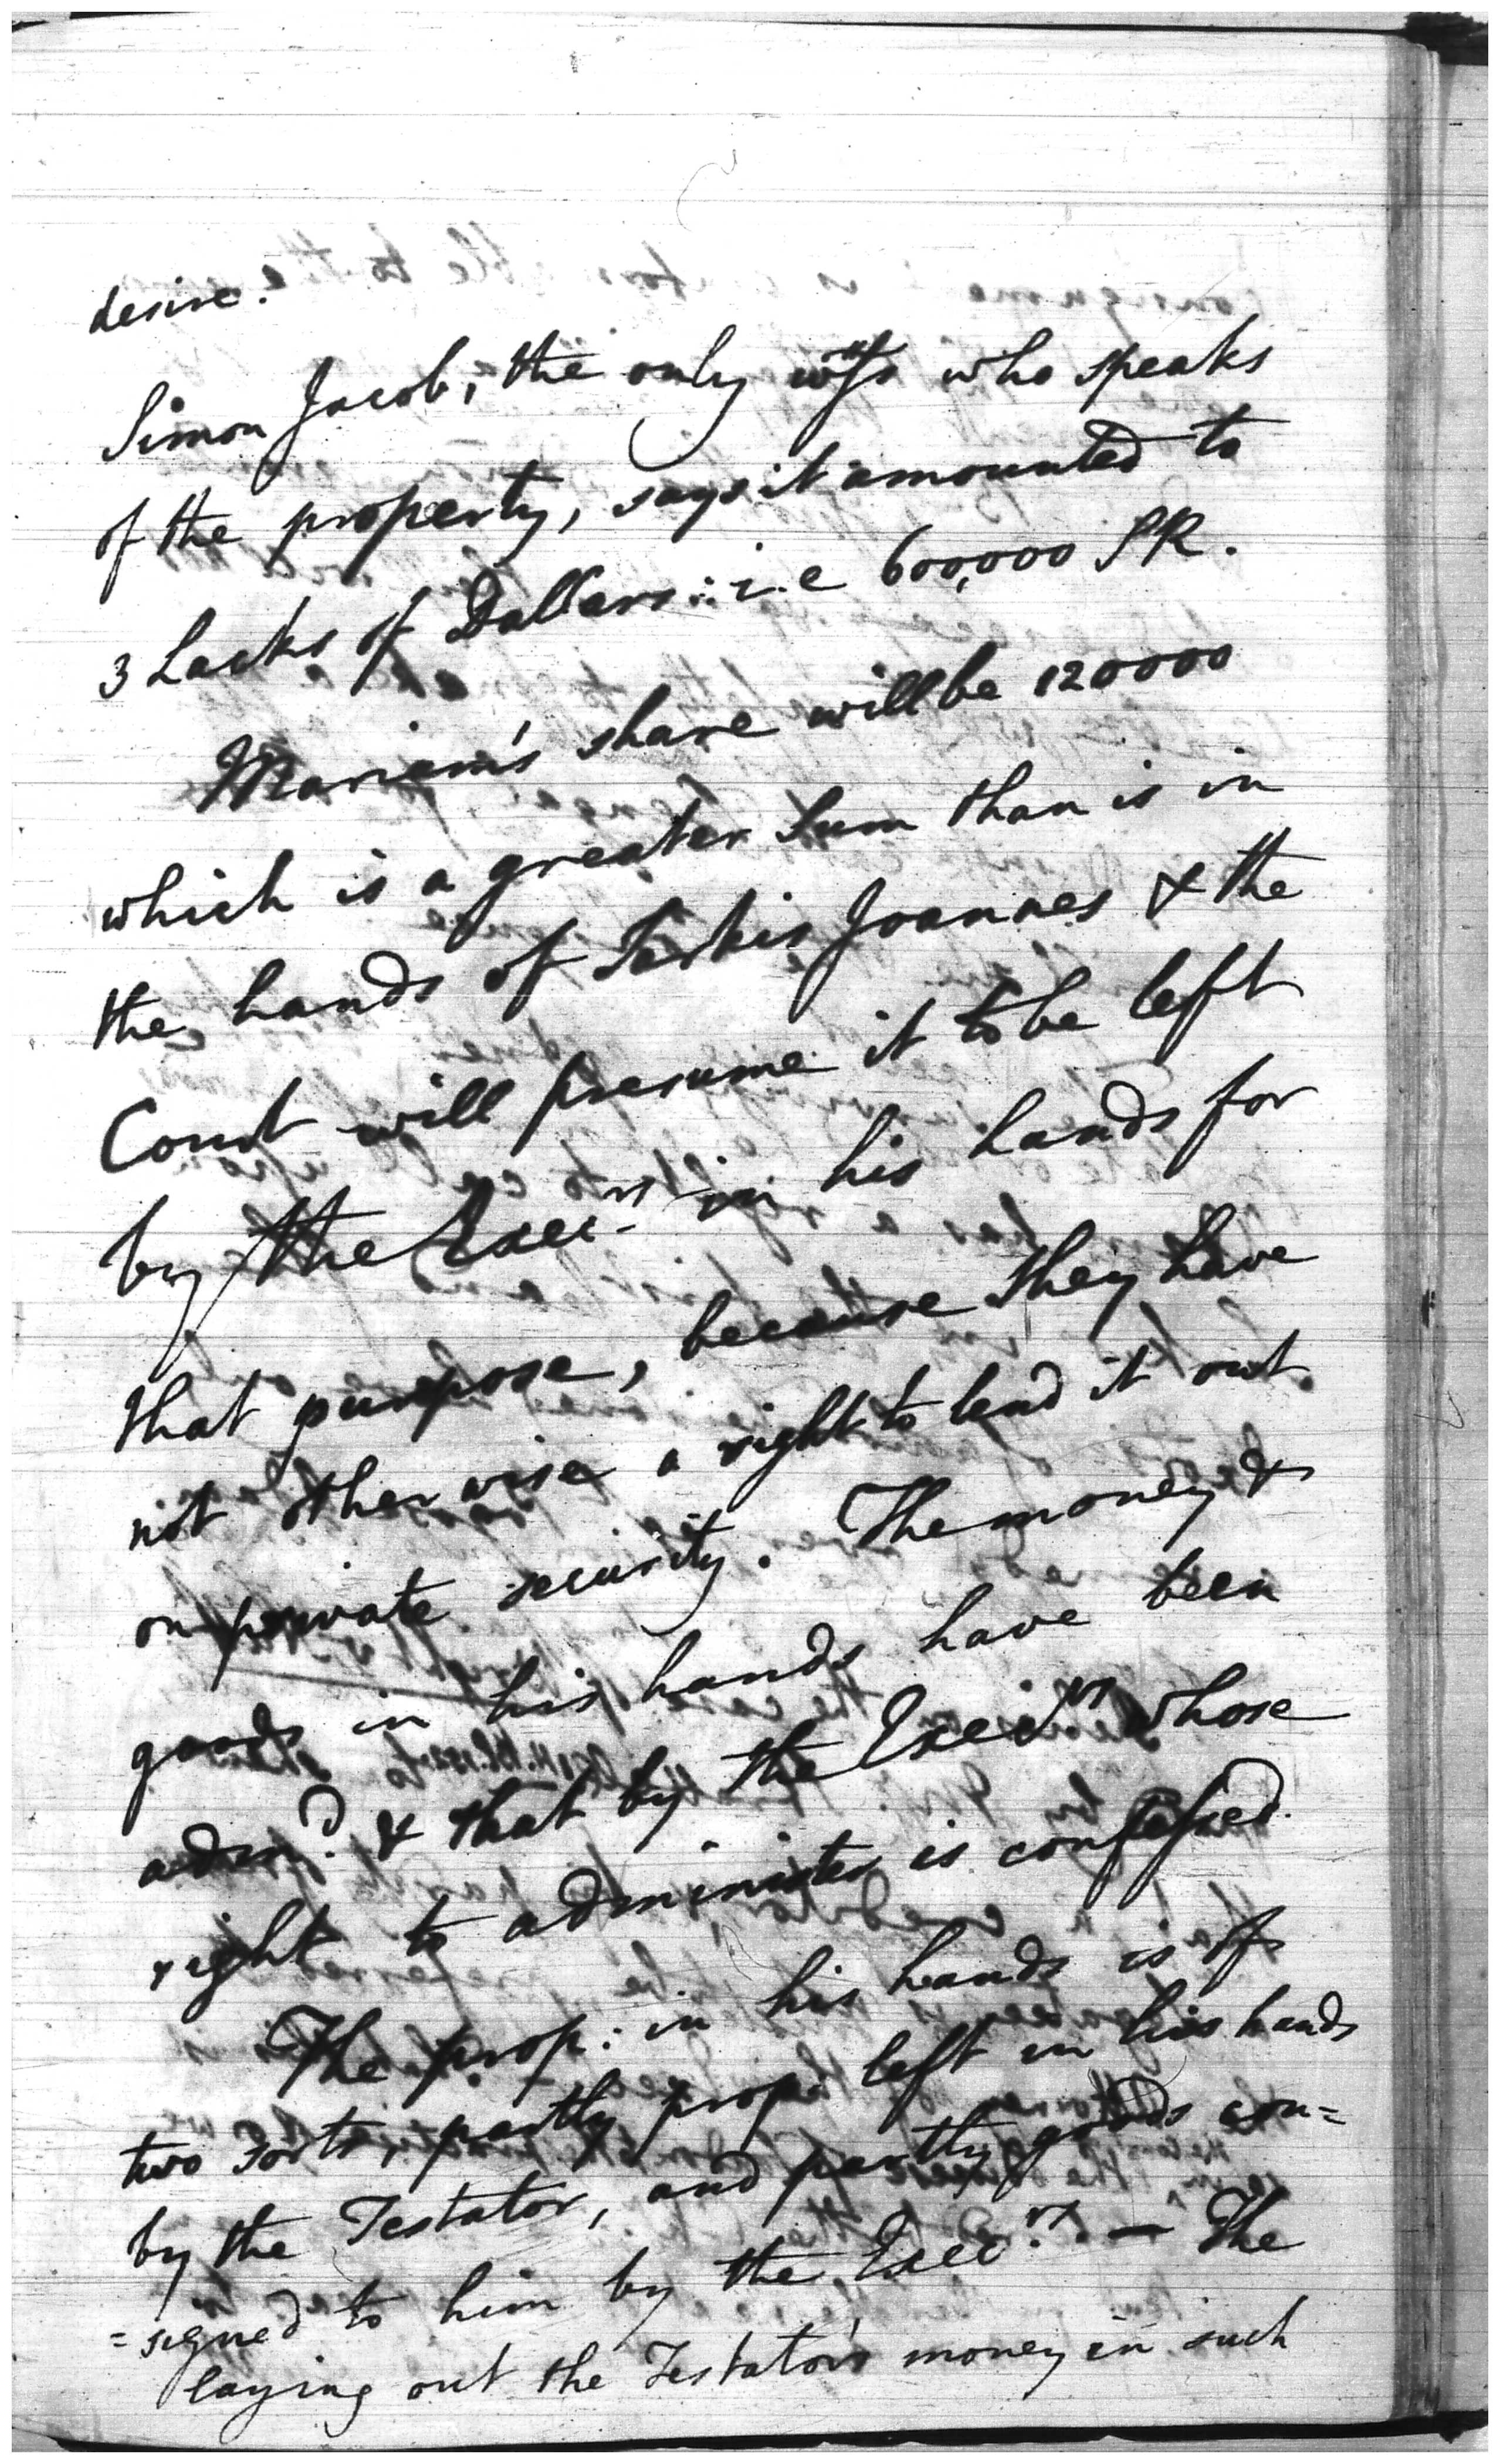 desire.
Simon Jacob, the only wss who speaks
of the property, says it amounted to
3 Lacks of Dollars :. i.e 600,000 SR.
Mariam's share will be 120000
which is a greater Sum than is in
the hands of Sarkis Joannes & the
Court will presume it to be left
by the Exec.rs in his hands for
that purpose, because they have
not otherwise a right to lend it out
on private security. The money &
goods in his hands have been
adm.d & that by the Exec.rs whose
right to administer is confessed.
The prop: in his hands is of
two sorts, partly prop: left in his hands
by the Testator, and partly goods con=
=signed to him by the Exec.rs — The
laying out the Testator's money in such